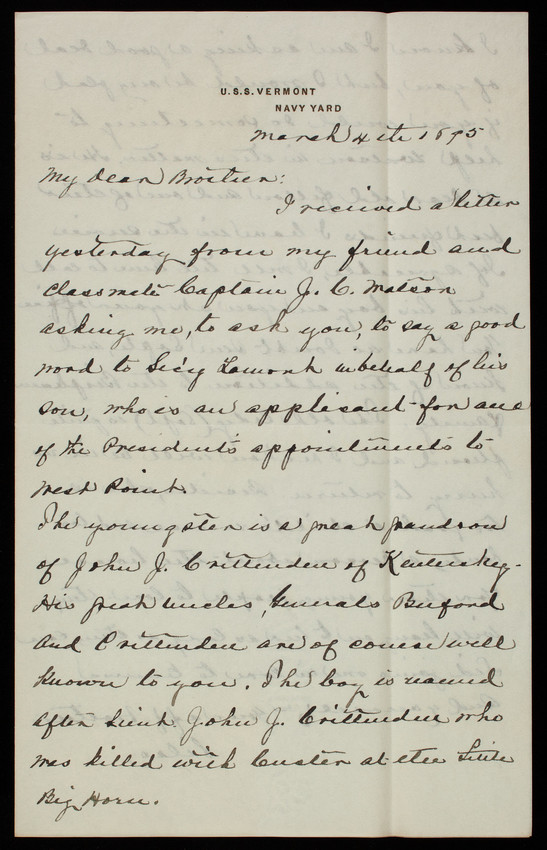 U.S.S. VERMONT
NAVY YARD
March 4th 1895
My dear Brother:
I recieved a letter
yesterday from my friend and
classmate Captain J. C. Watson
asking me, to ask you, to say a good
word to Sec'y Lamont in behalf of his
son, who is an applicant for one
of the President's appointments to
West Point.
The youngster is a great grandson
of John J. Crittenden of Kentucky.
His great uncles, Generals Buford
and Crittenden are of course well
known to you. The boy is named
after Lieut. John J. Crittenden who
was killed with Custer at the Little
Big Horn.